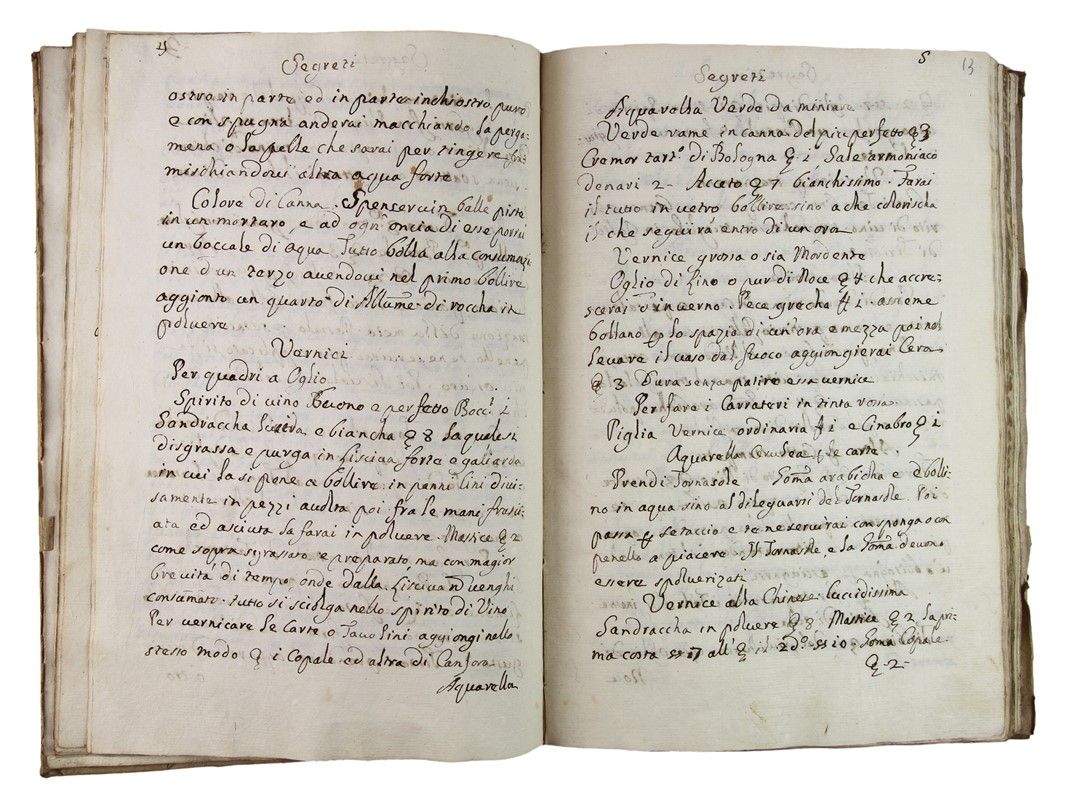 4
Segreti
ostro in parte ed in parte inchiostro puro
e con spugna anderai macchiando la perga-
mena o la pelle che sarai per tingere fra-
mischiandovi altra aqua forte
Colore di Canna. Spenservin balle piste
in un mortaro, e ad ogn'oncia di esse porrai
un boccale di aqua. Tutto bolla alla consumazi
one d'un terzo avendovi nel primo bollire
aggionto un quarto di Allume di roccha in
polvere
Vernici
Per quadri a Oglio
Spirito di vino buono e perfetto Bocc.i 1
Sandraccha e biancha ℥ 8 la quale si
disgrassa e purga in liscivia forte e galiarda
in cui la si pone a bollire in panni lini divi-
samente in pezzi avolta poi fra le mani
ata ed asciuta la farai in polvere. Mastice ℥ 2
come sopra sgrassato e preparato, ma con magior
brevità di tempo onde dalla liscivia n venghi
consumato. tutto si sciolga nello spirito di Vino
Per vernicare le Carte o Tavolini aggiongi nello
stesso modo ℥ i Copale ed altra di Canfora
Aquarella
5
13
Segreti
Aquarella Verde da miniare
Verde rame in canna del piu perfetto ℥ 3
Cremor tart.o di Bologna ℥ i Sale armoniaco
denari 2 - Aceto ℥ 7 bianchissimo. Farai
il tutto in vetro bollire sino a che colorischa
il che seguirà entro di un ora
Vernice grossa o sia Mordente
Oglio di Lino o pur di Noce ℥ 4 che accre-
scerai d'inverno. Pece grecha i assieme
bollano lo spazio di un'ora e mezza poi nel
levare il vaso dal fuoco aggiongierai Cera
℥ 3 Dura senza patire essa vernice
Per fare i Carrateri in tinta rossa
Piglia Vernice ordinaria i e Cinabro ℥ i
Aquarella Cerulea le carte
Prendi Tornasole Goma arabicha e bolli-
no in aqua sino al dileguarsi del Tornasole. Poi
passa setaccio e te ne servirai con sponga o con
penello a piacere Il Tornasole e la Goma devono
essere spolverizati
Vernice alla Chinese lucidissima
Sandraccha in polvere ℥ 8 Mastice ℥ 2 la pri-
ma costa 17 all' ℥ il 2do 10. Goma Copale
℥ -2-